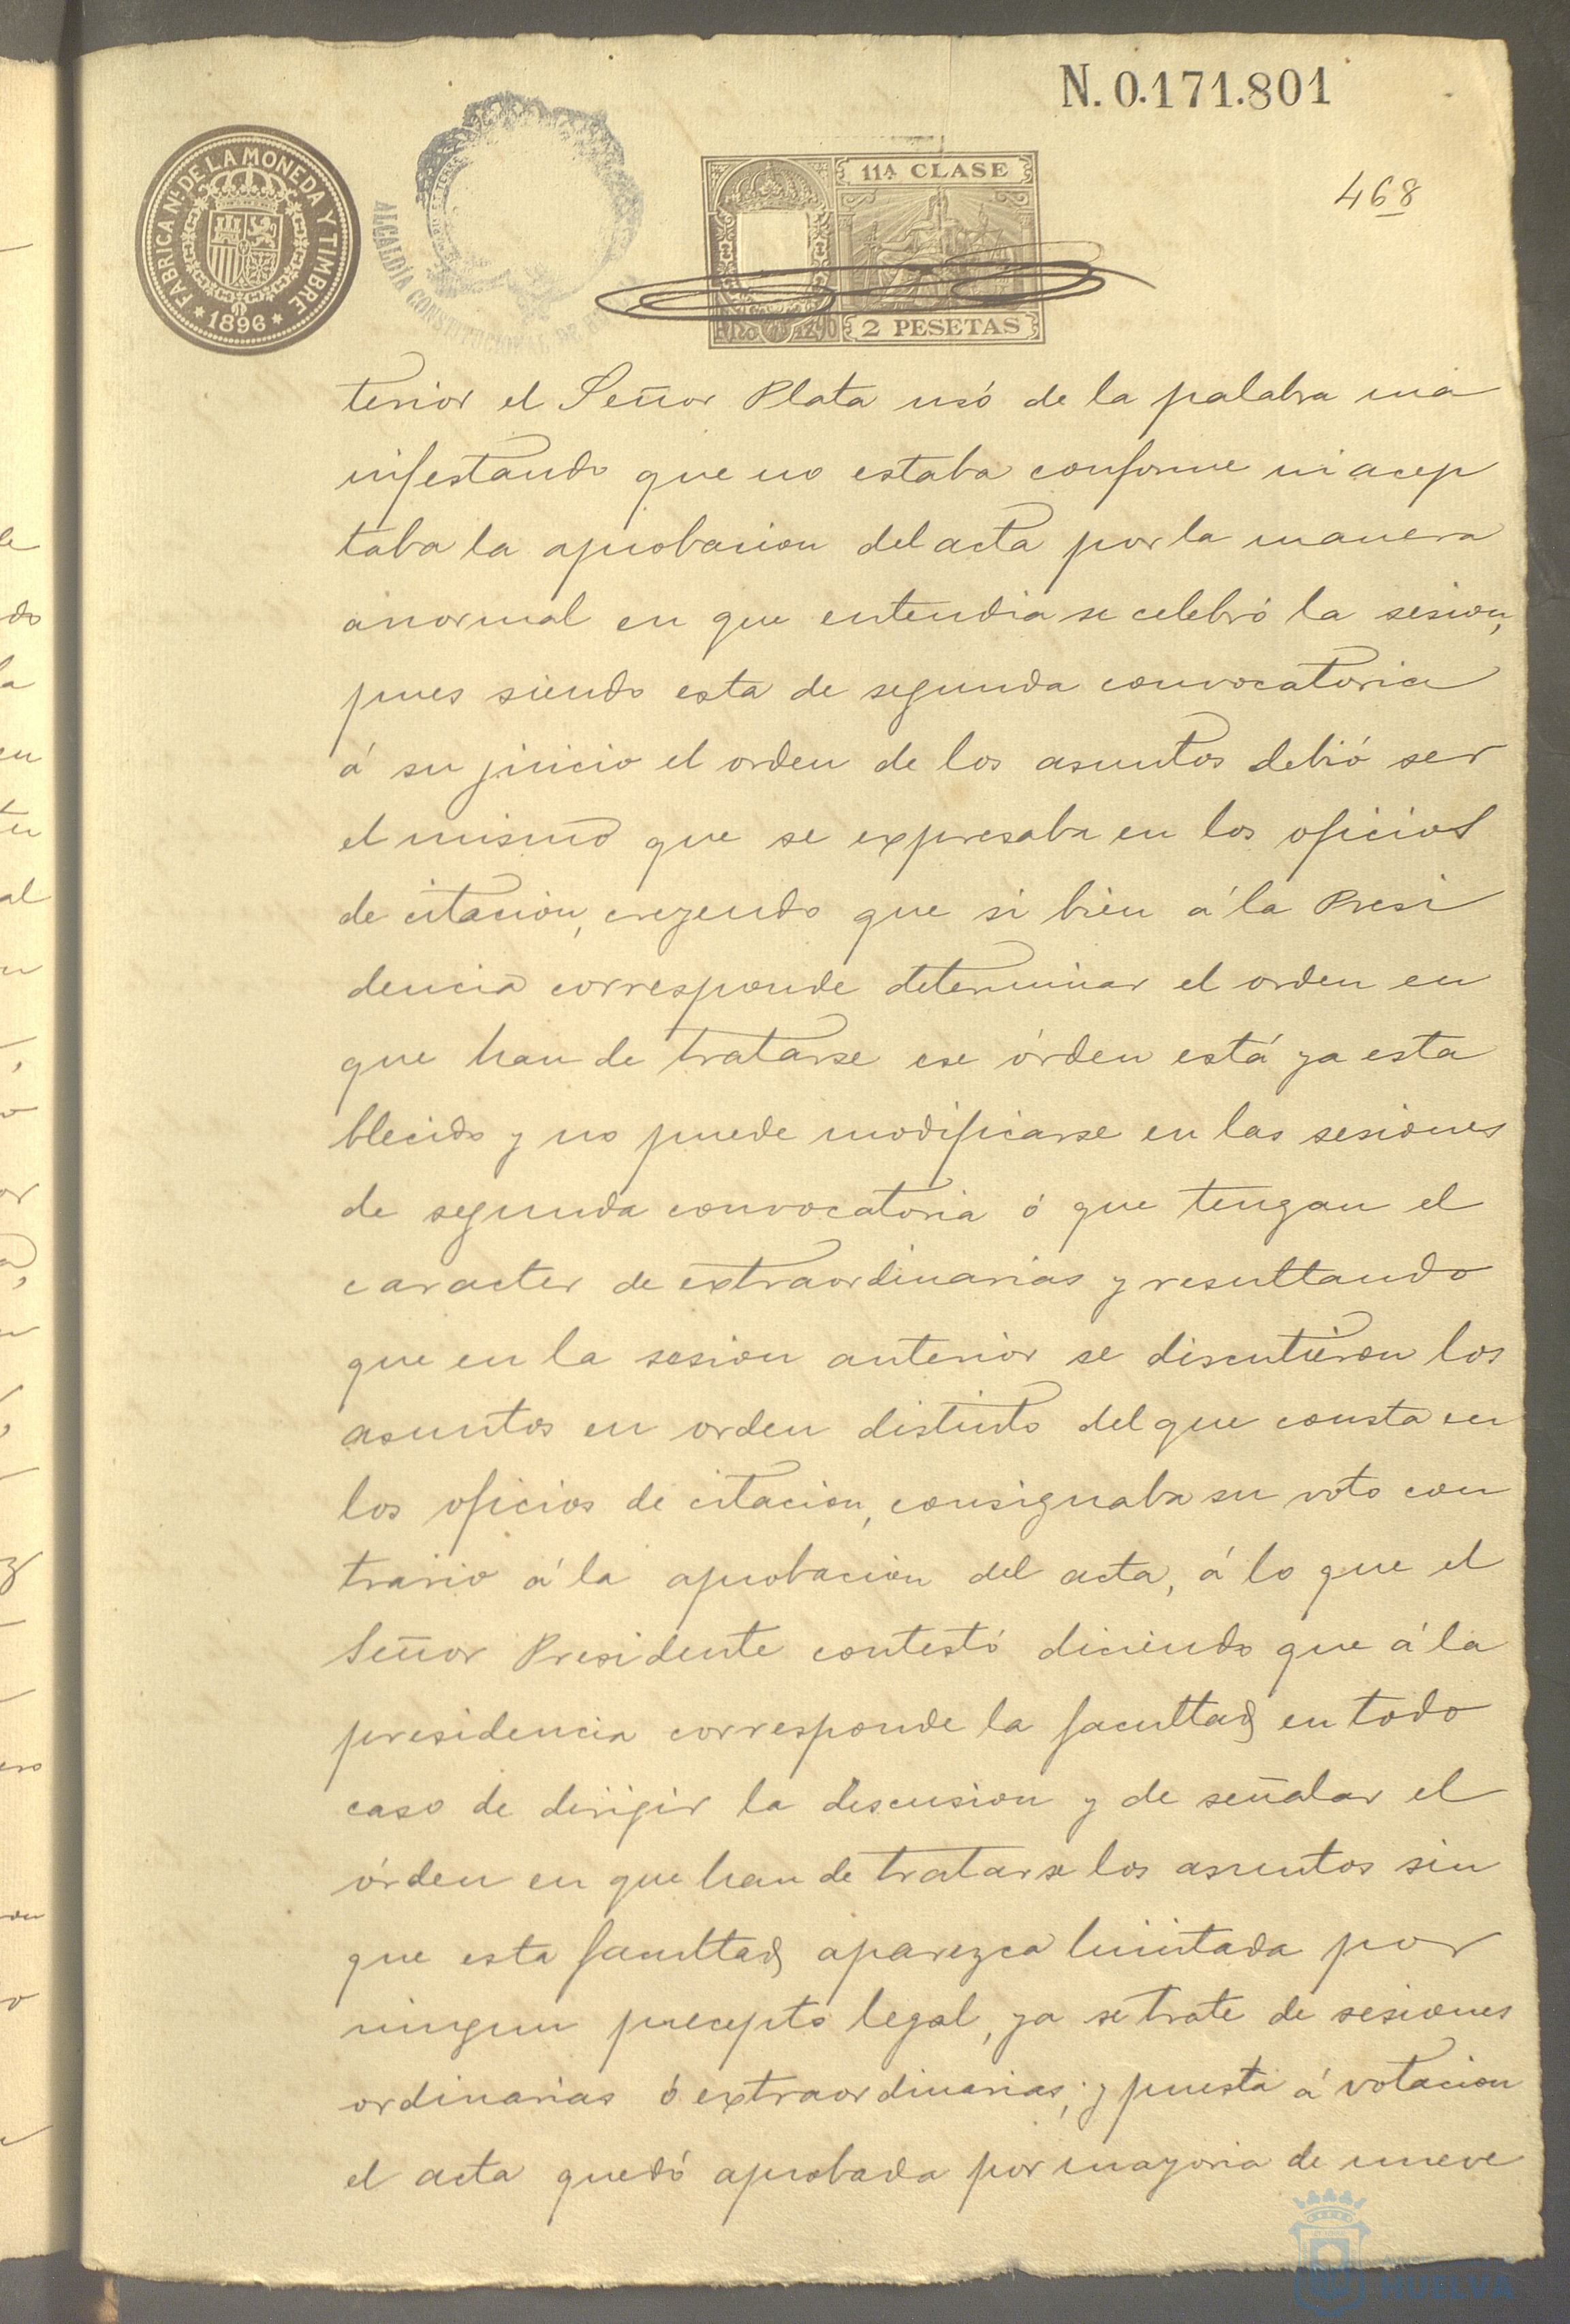 N. 0.171.801
468
FABRICA NL. DE LA MONEDA Y TIMBRE
* 1896 *
ALCALDÍA CONSTITUCIONAL DE
11A CLASE
2 PESETAS
terior el Señor Plata usó de la palabra ma
nifestando que no estaba conforme ni acep
taba la aprobacion del acta por la manera
anormal en que entendia se celebró la sesion,
pues siendo esta de segunda convocatoria
á su juicio el orden de los asuntos debió ser
el mismo que se expresaba en los oficios
de citacion, creyendo que si bien á la Presi
dencia corresponde determinar el orden en
que han de tratarse ese órden está ya esta
blecido y no puede modificarse en las sesiones
de segunda convocatoria ó que tengan el
caracter de extraordinarias y resultando
que en la sesion anterior se discutieron los
asuntos en orden distinto del que consta en
los oficios de citacion, consignaba su voto con
trario á la aprobacion del acta, á lo que el
Señor Presidente contestó diciendo que á la
presidencia corresponde la facultad en todo
caso de dirigir la discusion y de señalar el
órden en que han de tratarse los asuntos sin
que esta facultad aparezca limitada por
ningun precepto legal, ya se trate de sesiones
ordinarias ó extraordinarias; y puesta á votacion
el acta quedó aprobada por mayoria de nueve
HUELVA